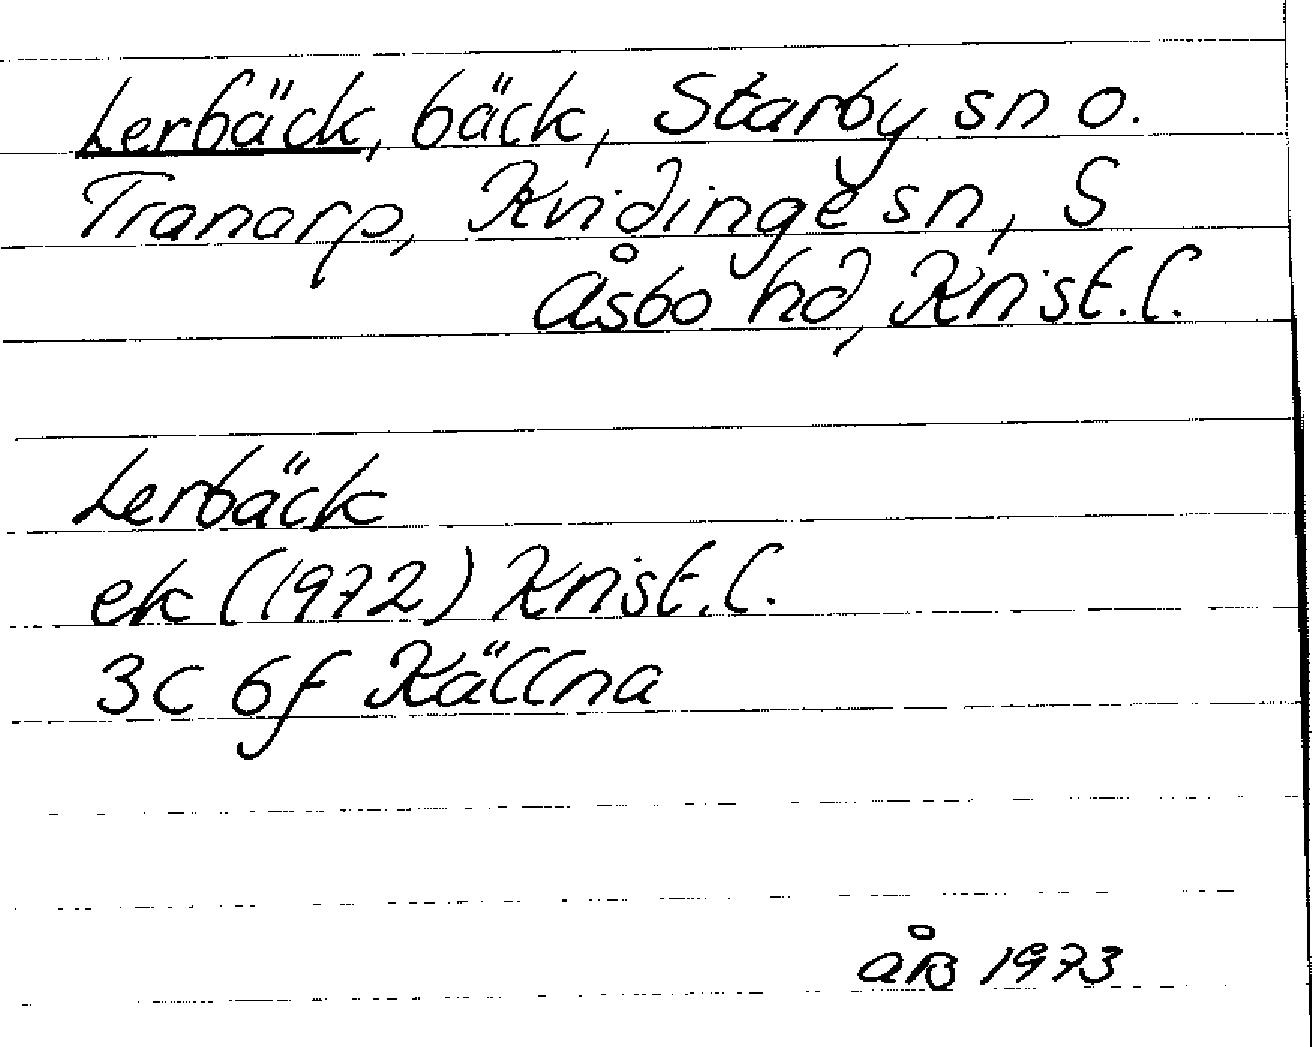 Lerbäck, bäck, Starby sn o.
Tranarp, Kvidinge sn, S
Åsbo hd, Krist. l.
Lerbäck
ek (1972) Krist. l.
3C 6f Källna
ÅB 1973